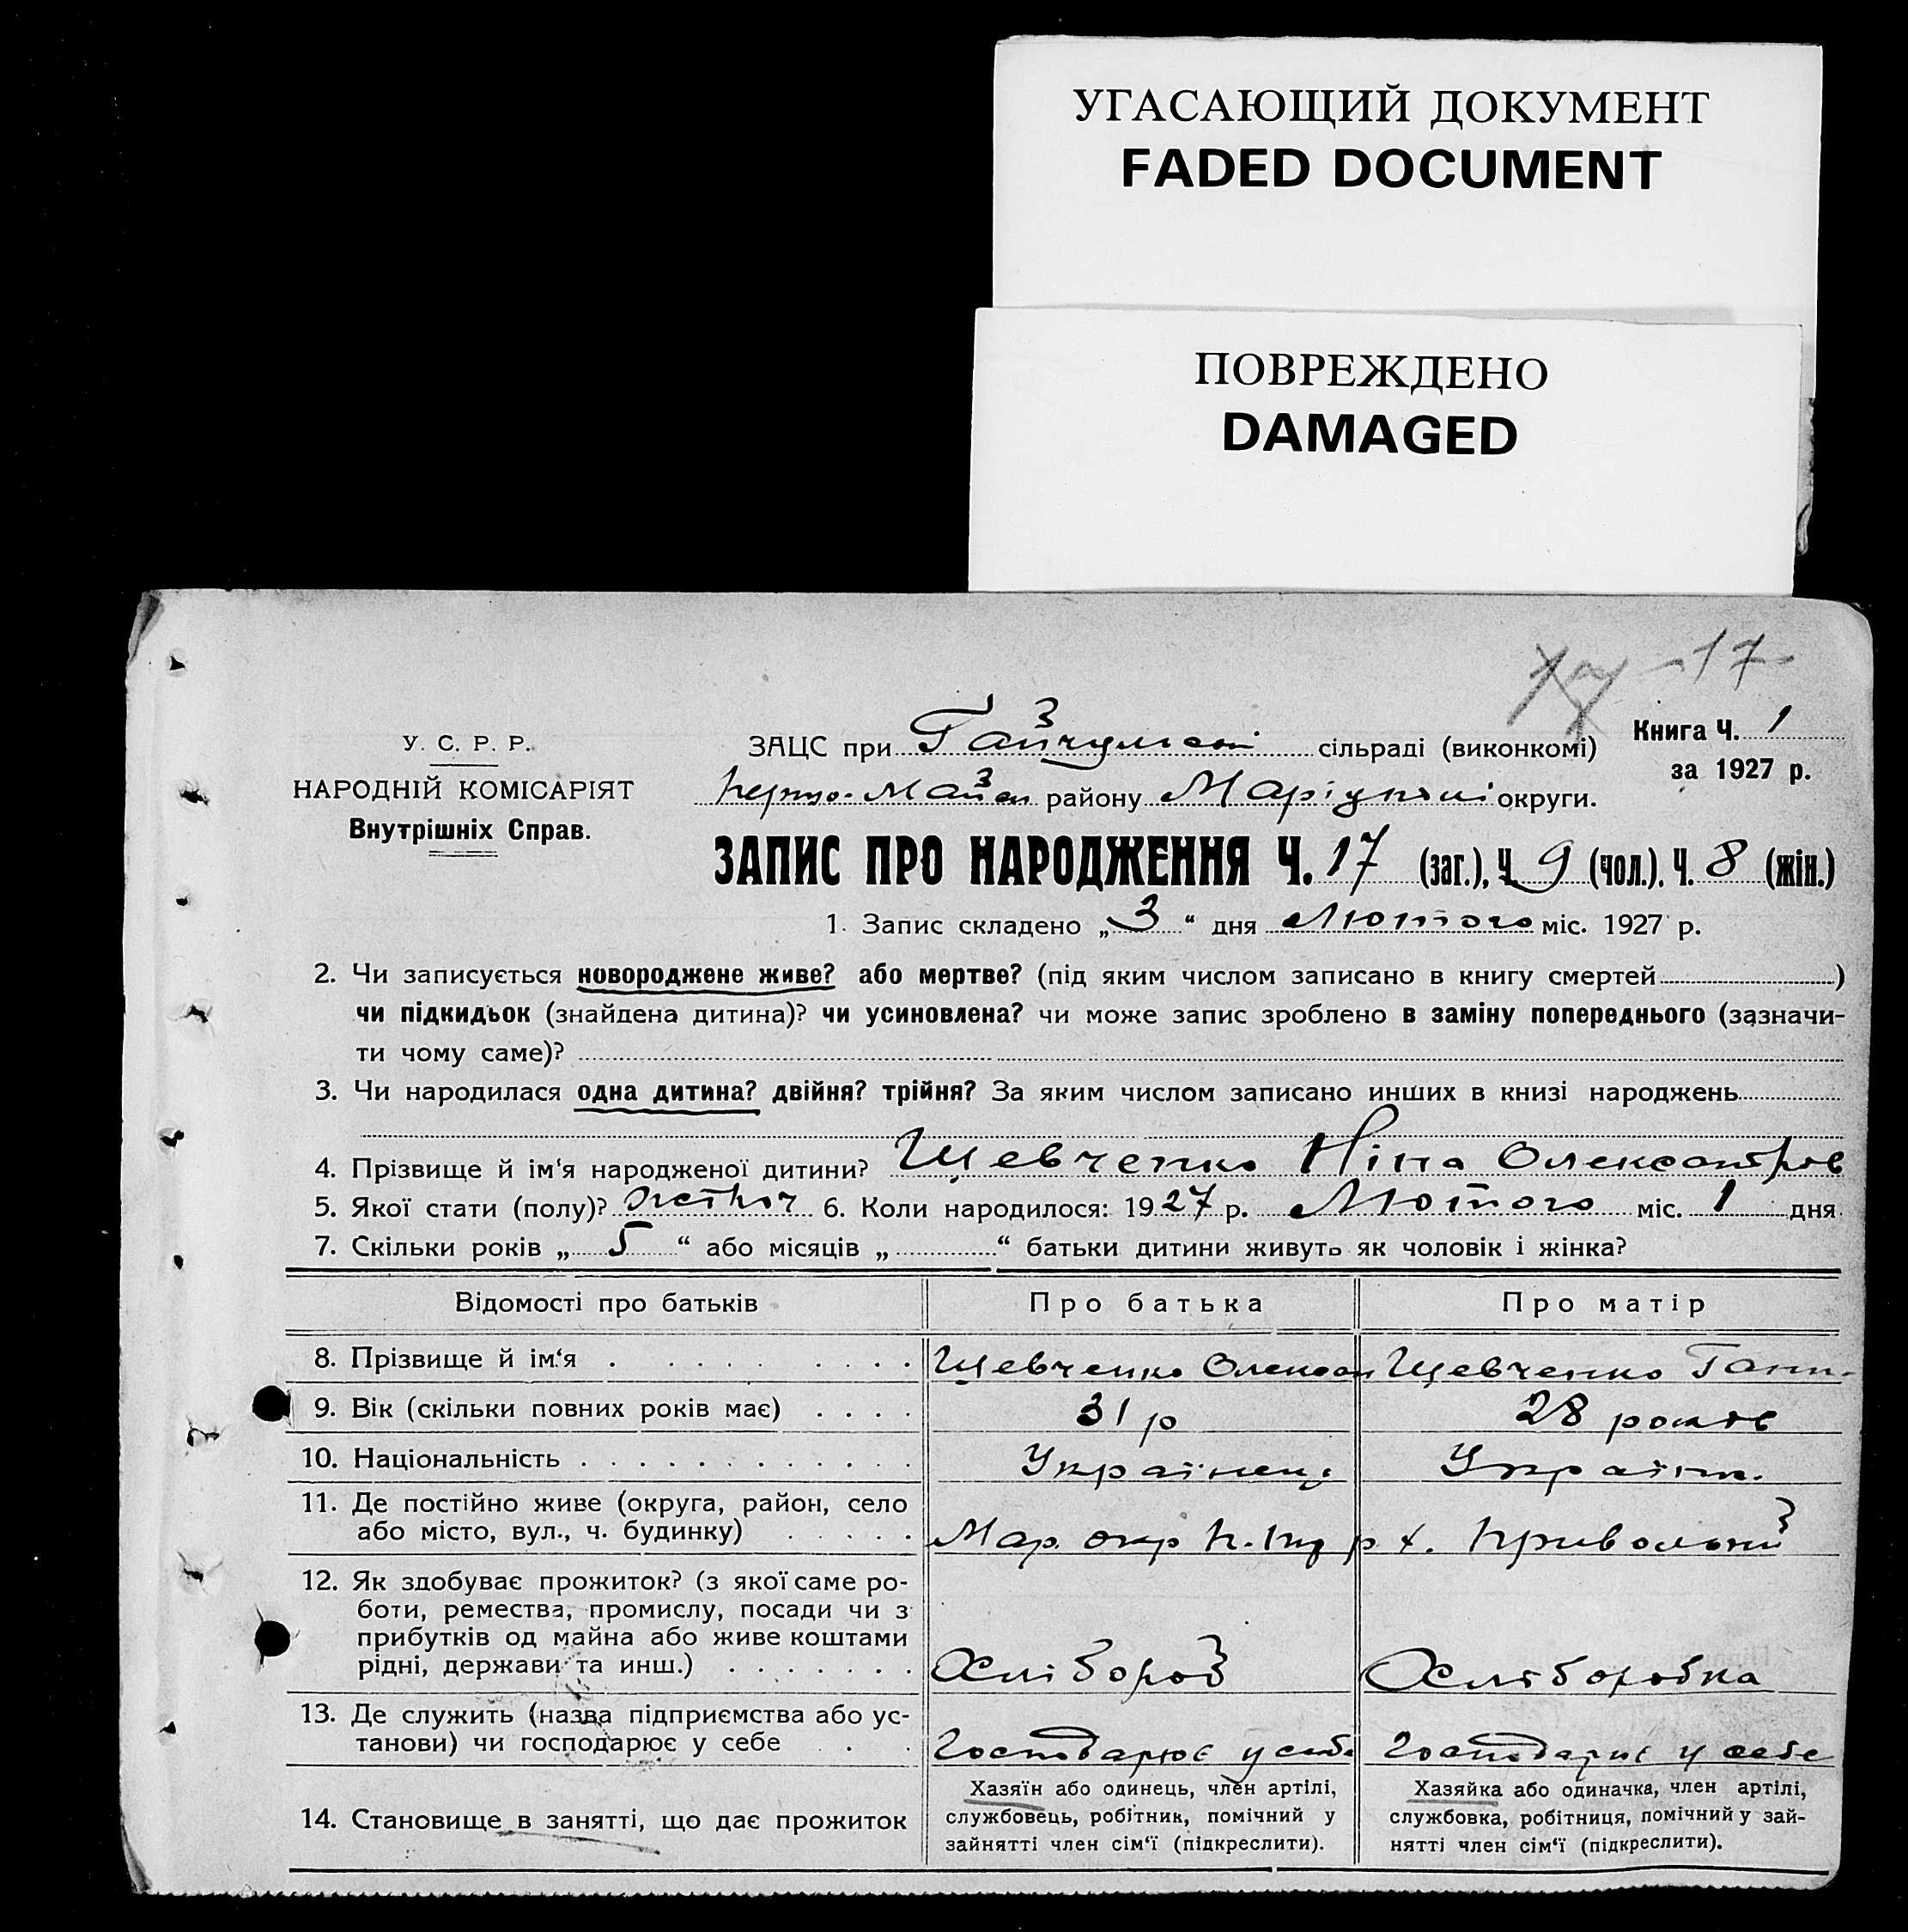 УГАСАЮЩИЙ ДОКУМЕНТ
FADED DOCUMENT
ПОВРЕЖДЕНО
DAMAGED
17
У. С. Р. Р.
НАРОДНІЙ КОМІСАРІЯТ
Внутрішніх Справ.
Книга Ч. 1
за 1927 р.
ЗАЦС при Гайчульскій сільраді (виконкомі)
району Маріупільскі округи.
ЗАПИС ПРО НАРОДЖЕННЯ Ч. 17 (заг.), Ч. 9 (чол.), Ч. 8 (жін.)
1. Запис складено „3“ дня Лютого міс. 1927 р.
2. Чи записується новороджене живе? або мертве? (під яким числом записано в книгу смертей )
чи підкидьок (знайдена дитина)? чи усиновлена? чи може запис зроблено в заміну попереднього (зазначи-
ти чому саме)?
3. Чи народилася одна дитина? двійня? трійня? За яким числом записано инших в книзі народжень
4. Прізвище й ім‘я народженої дитини? Шевченко Ніна Олександров
5. Якої стати (полу)? жіноч 6. Коли народилося: 1927 р. Лютого міс. 1 дня
7. Скільки років „5“ або місяців „ “ батьки дитини живуть як чоловік і жінка?
Відомості про батьків Про батька Про матір
8. Прізвище й ім‘я Шевченко Олексан Шевченко Ганн.
9. Вік (скільки повних років має) 31 р 28 років
10. Національність Українець Україн.
11. Де постійно живе (округа, район, село
або місто, вул., ч. будинку) Мар. окр р х. Привольний
12. Як здобуває прожиток? (з якої саме ро-
боти, ремества, промислу, посади чи з
прибутків од майна або живе коштами
рідні, держави та инш.) Хлібороб Хліборобка
13. Де служить (назва підприємства або ус-
танови) чи господарює у себе Господарює у себе Господарює у себе
14. Становище в занятті, що дає прожиток
Хазяїн або одинець, член артілі,
службовець, робітник, помічний у
зайнятті член сім‘ї (підкреслити).
Хазяйка або одиначка, член артілі,
службовка, робітниця, помічний у зай-
нятті член сім‘ї (підкреслити).